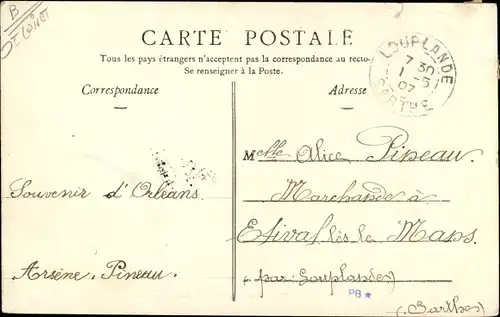 B
CARTE POSTALE
Tous les pays étrangers n'acceptent pas la correspondance au recto-
Se renseigner à la Poste.
Correspondance
Adresse
LOUPLANDE
7 30
1 -5
07
SARTHE
Melle Alice Pineau.
Marchande à
Etival lès le Mans
(par Louplande)
(Sarthe)
Souvenir d'Orléans
Arsène. Pineau.
PB★